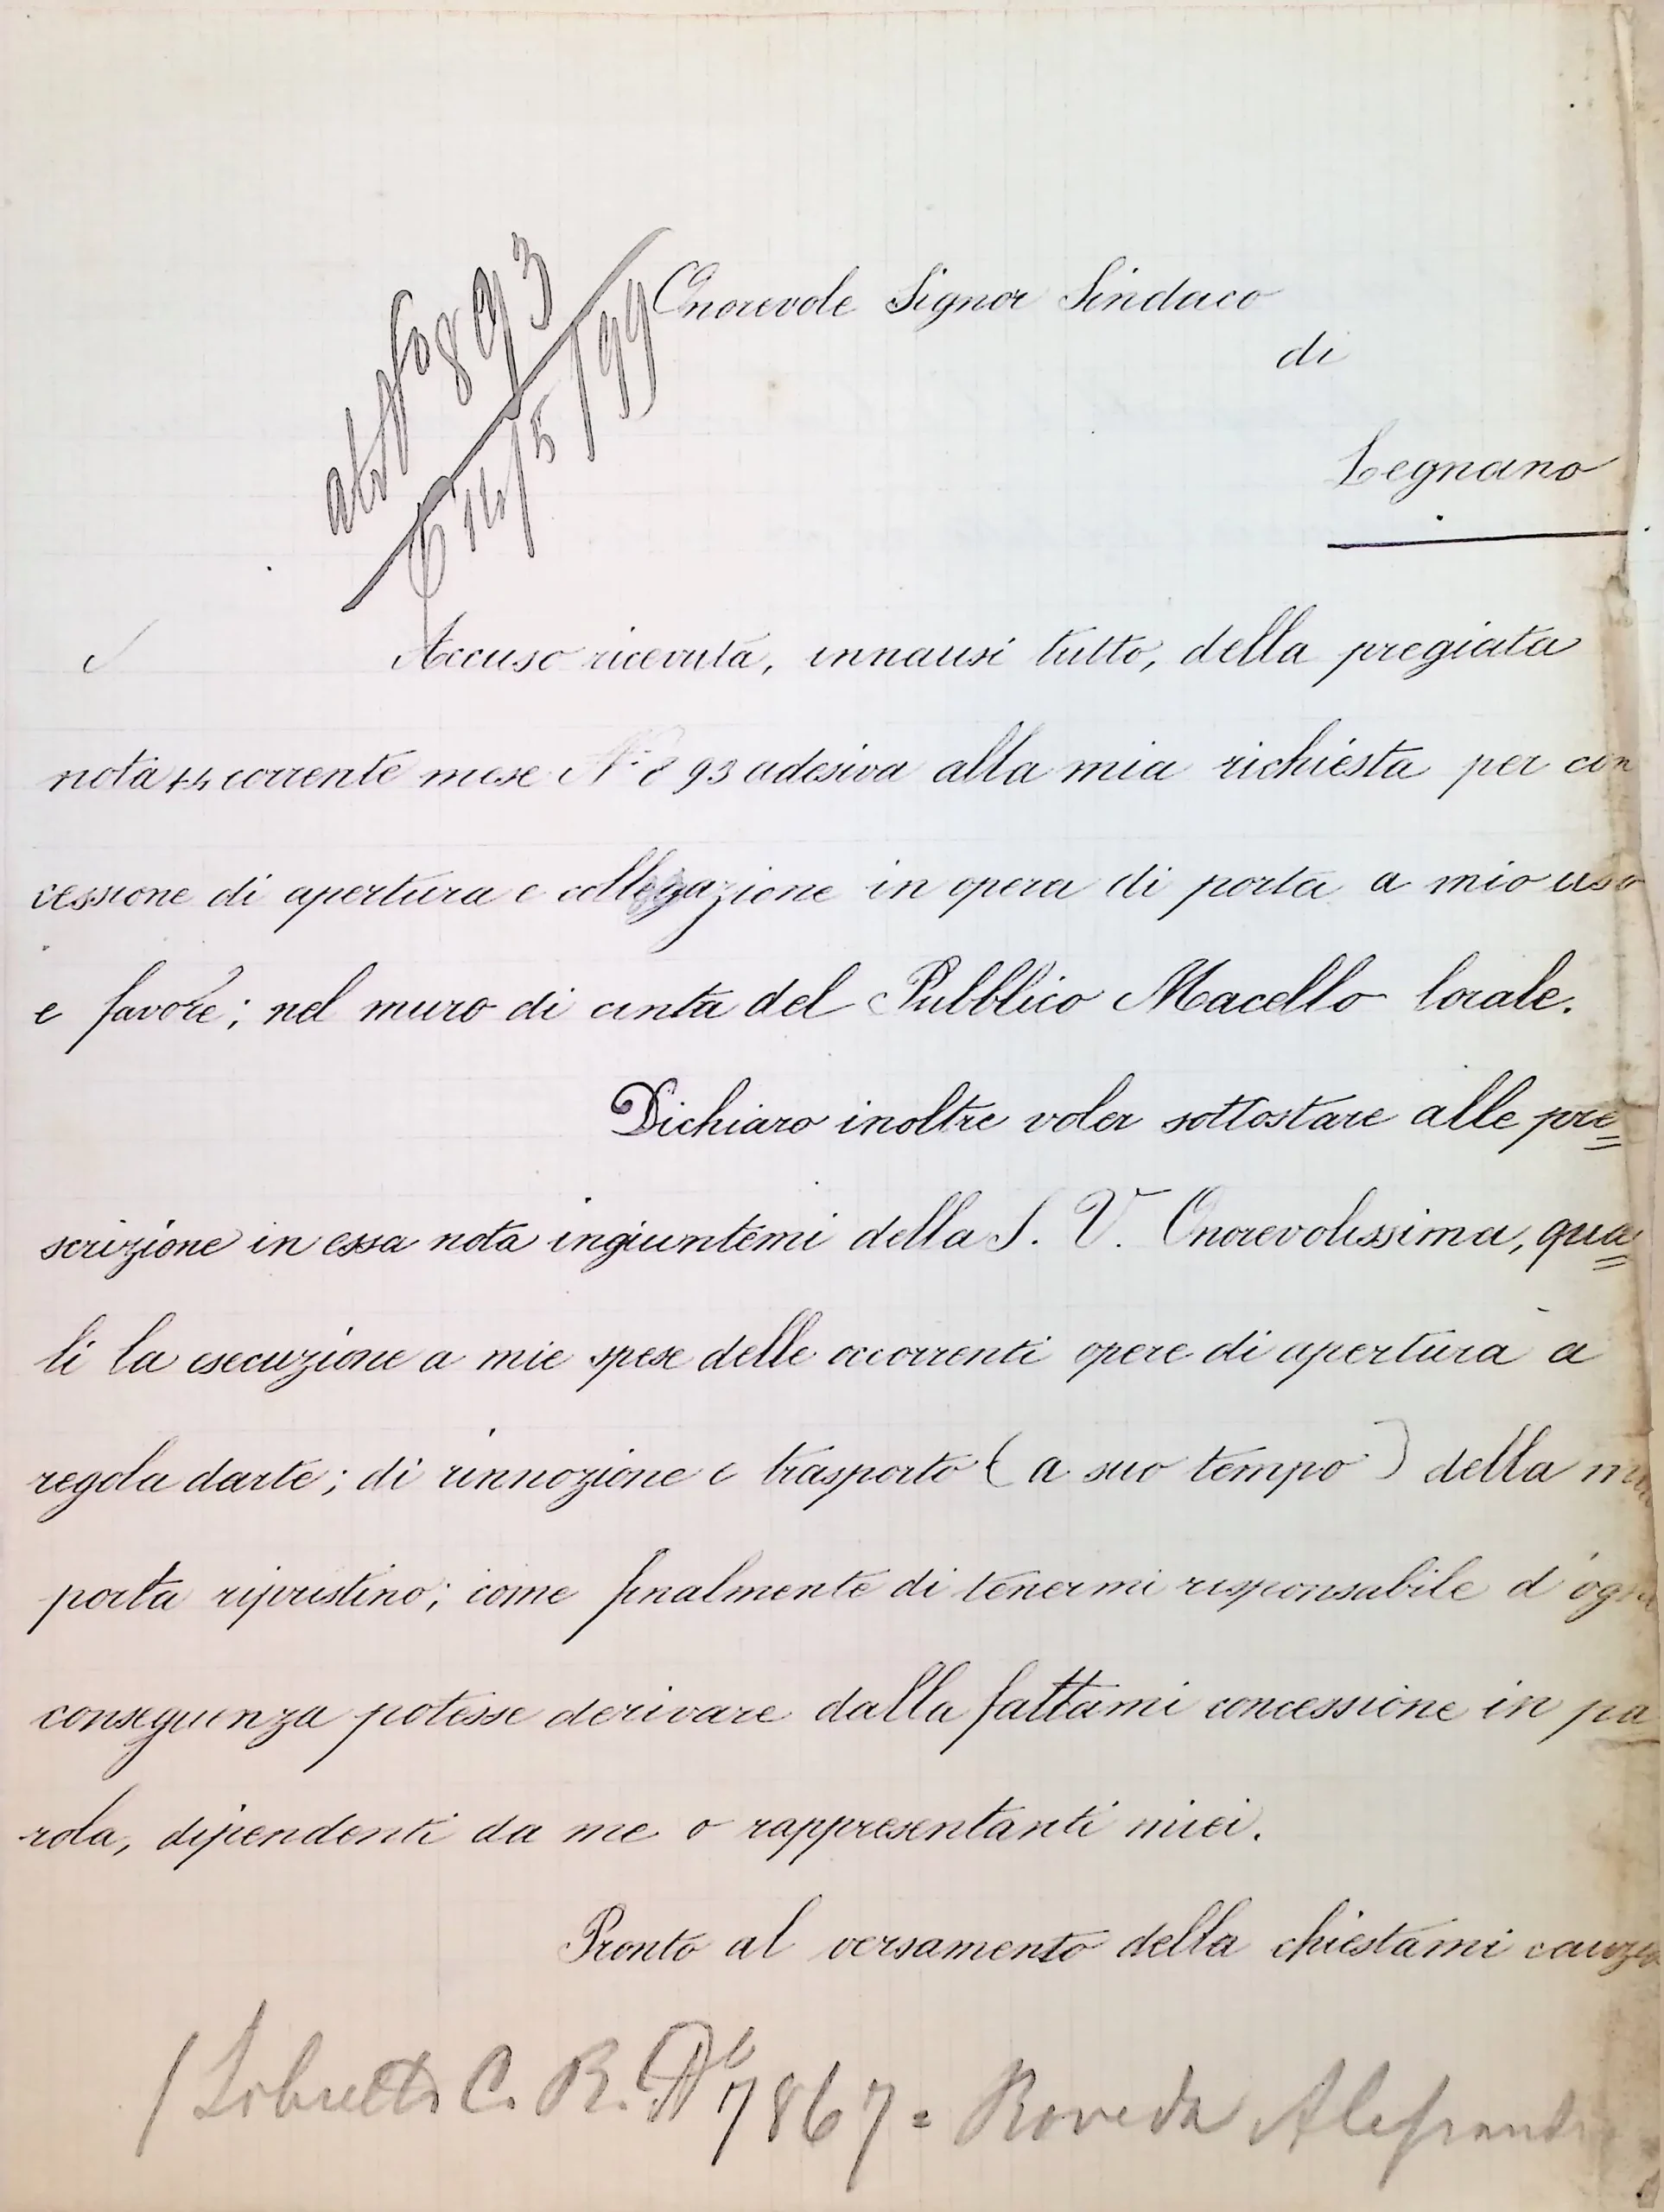 Onorevole Signor Sindaco
di
Legnano
893
14/5/99
Accuso ricevuta, innansi tutto, della pregiata
nota 14 corrente mese N° 893 adesiva alla mia richiesta per con
cessione di apertura e collegazione in opera di porta a mio uso
e favore; nel muro di cinta del Pubblico Macello locale.
Dichiaro inoltre voler sottostare alle pre=
scrizione in essa nota ingiuntemi della S. V. Onorevolissima, qua=
li la esecuzione a mie spese delle occorrenti opere di apertura a
regola darte; di rinnozione e trasporto ( a suo tempo ) della
porta ripristino; come finalmente di tenermi responsabile d'ogni
conseguenza potesse derivare dalla fattami concessione in pa
rola, dipendenti da me o rappresentanti miei.
Pronto al versamento della chiestami cauzio
( Libretto C. R. N° 7867 = Roveda Alessandro